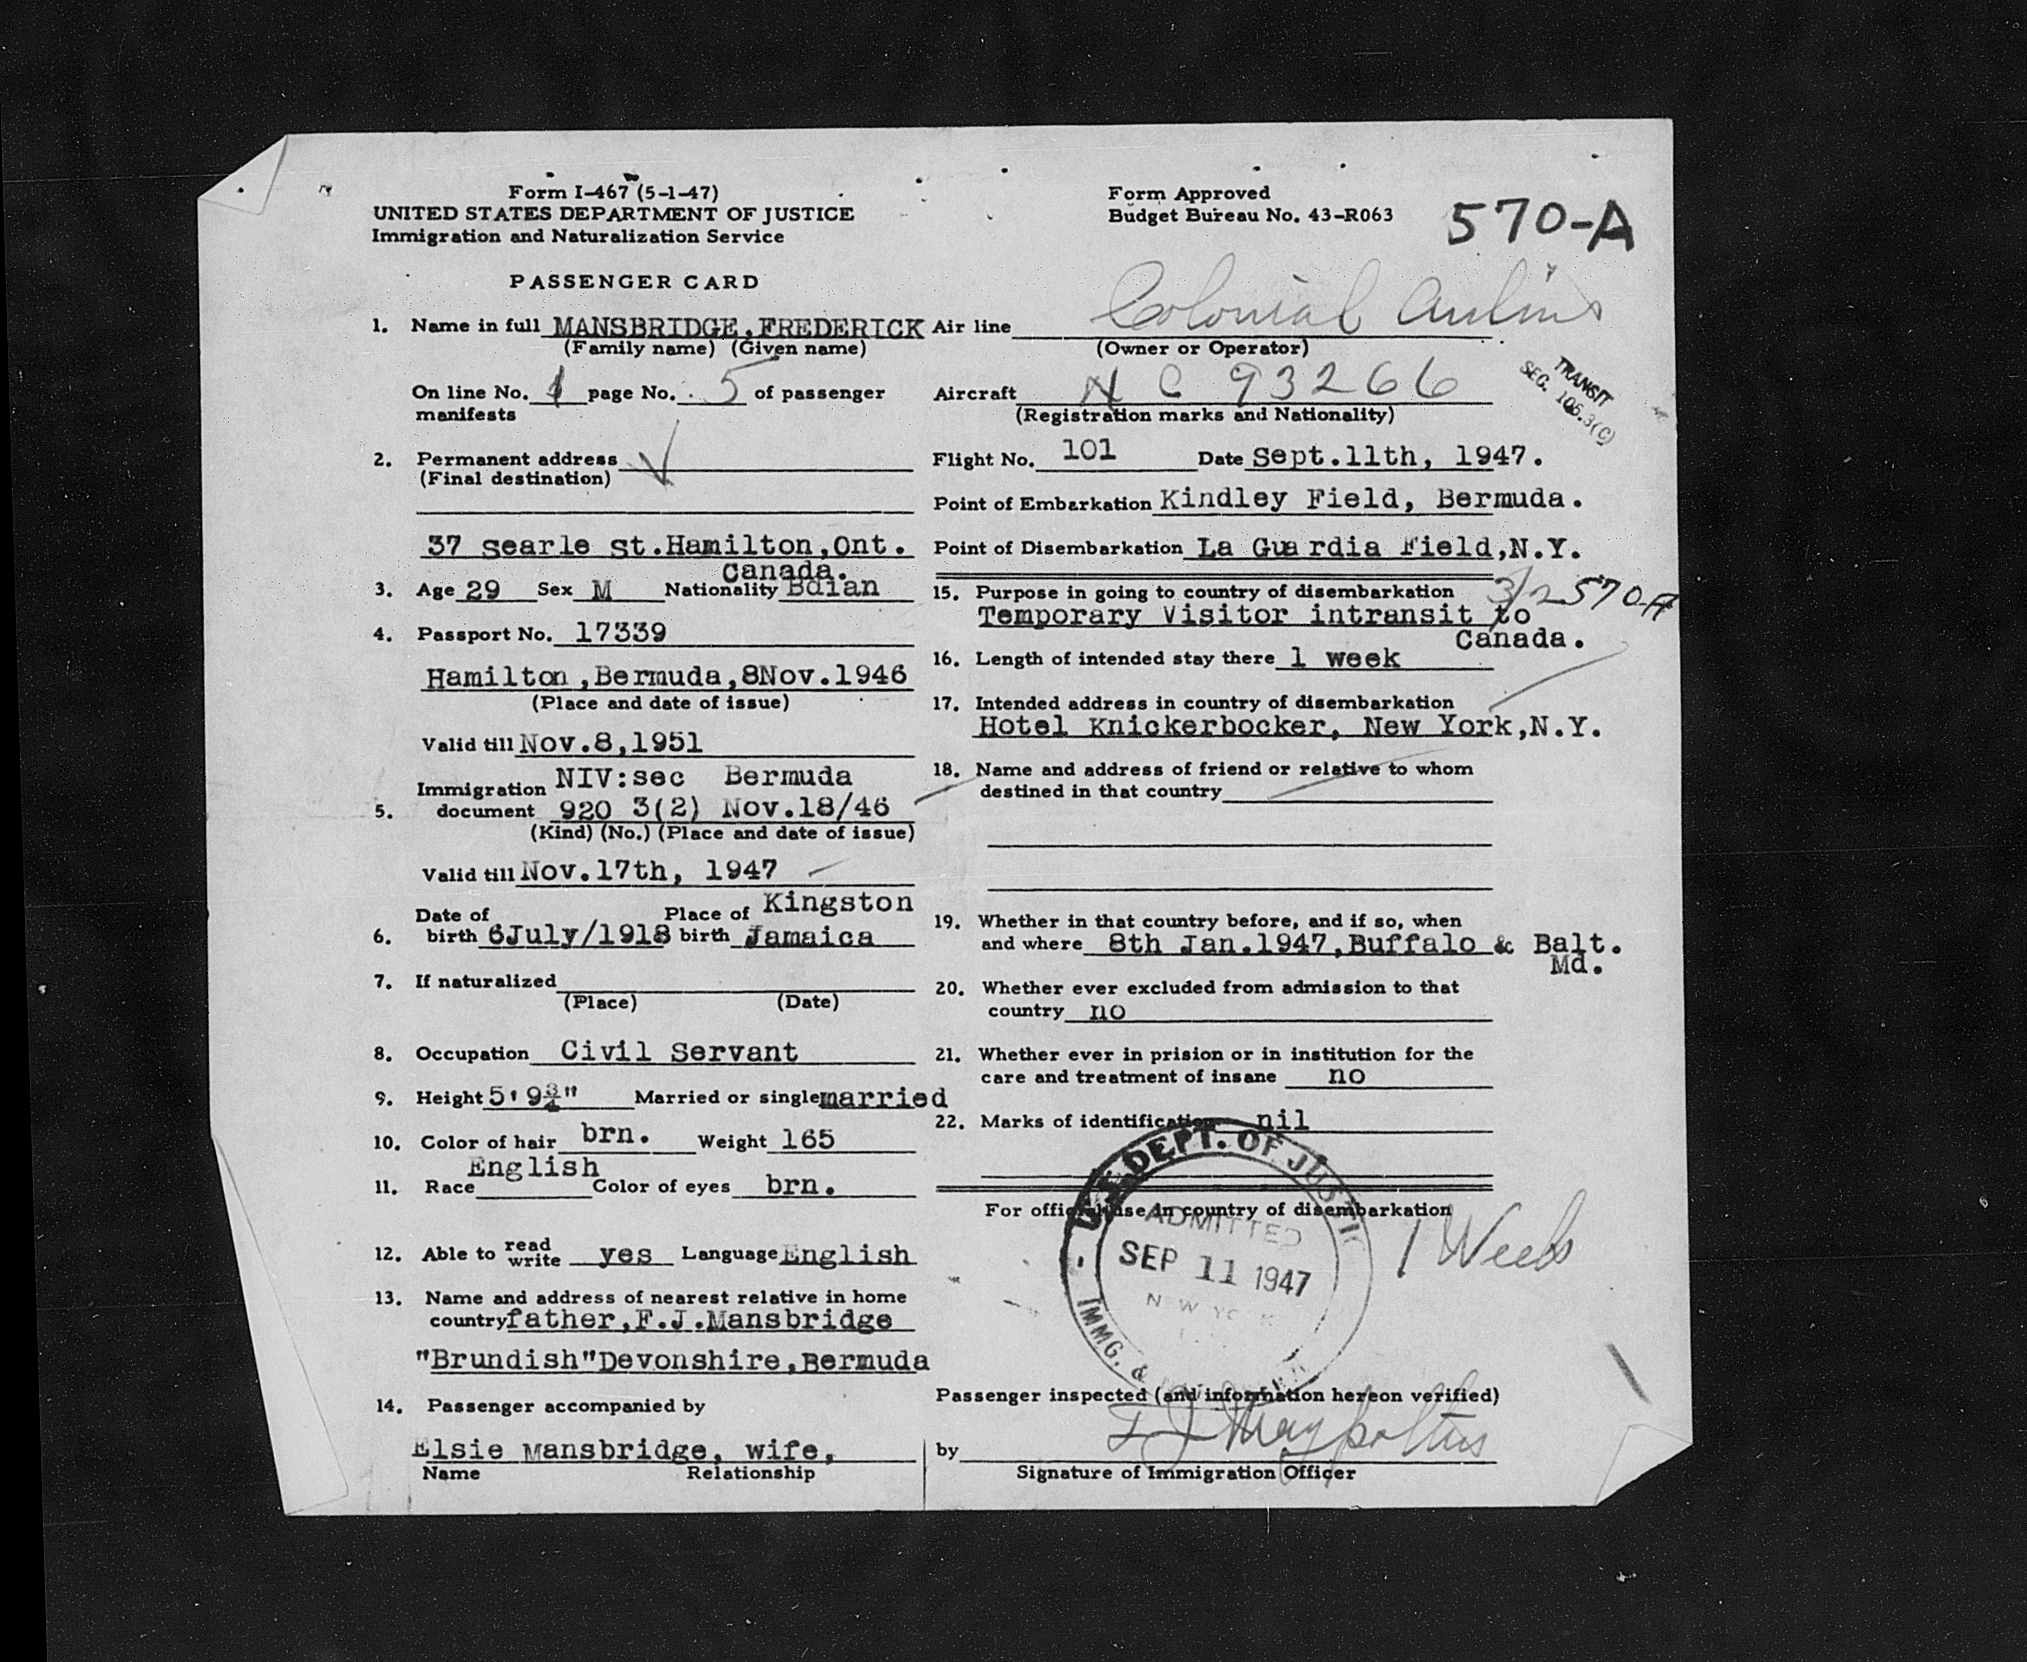 Form I-467 (5-1-47)
UNITED STATES DEPARTMENT OF JUSTICE
Immigration and Naturalization Service
PASSENGER CARD
1. Name in full MANSBRIDGE,FREDERICK
(Family name) (Given name)
On line No. 1 page No. 5 of passenger
manifests
2. Permanent address
(Final destination)
37 Searle St.Hamilton,Ont.
Canada.
3. Age 29 Sex M Nationality Bdian
4. Passport No. 17339
Hamilton,Bermuda,8Nov.1946
(Place and date of issue)
Valid till Nov.8,1951
NIV:sec Bermuda
Immigration
5. document 920 3(2) Nov.18/46
(Kind) (No.) (Place and date of issue)
Valid till Nov.17th, 1947
Date of Place of Kingston
6. birth 6July/1918 birth Jamaica
7. If naturalized
(Place) (Date)
8. Occupation Civil Servant
9. Height 5'9¾" Married or single married
10. Color of hair brn. Weight 165
English
11. Race Color of eyes brn.
12. Able to read write yes Language English
13. Name and address of nearest relative in home
country father,F.J.Mansbridge
"Brundish"Devonshire,Bermuda
14. Passenger accompanied by
Elsie Mansbridge, wife,
Name Relationship
Form Approved
Budget Bureau No. 43-R063
570-A
Air line Colonial Airlines
(Owner or Operator)
Aircraft NC 93266
(Registration marks and Nationality)
TRANSIT
SEC. 106.3(C)
Flight No. 101 Date Sept.11th, 1947.
Point of Embarkation Kindley Field, Bermuda.
Point of Disembarkation La Guardia Field,N.Y.
15. Purpose in going to country of disembarkation
3/2 570-A
Temporary Visitor intransit to
Canada.
16. Length of intended stay there 1 week
17. Intended address in country of disembarkation
Hotel Knickerbocker, New York,N.Y.
18. Name and address of friend or relative to whom
destined in that country
19. Whether in that country before, and if so, when
and where 8th Jan.1947,Buffalo & Balt.
Md.
20. Whether ever excluded from admission to that
country no
21. Whether ever in prision or in institution for the
care and treatment of insane no
22. Marks of identification nil
For official use in country of disembarkation
U.S. DEPT. OF JUSTICE
ADMITTED
SEP 11 1947
NEW YORK
IMMG. &
1 Week
Passenger inspected (and information hereon verified)
by
Signature of Immigration Officer